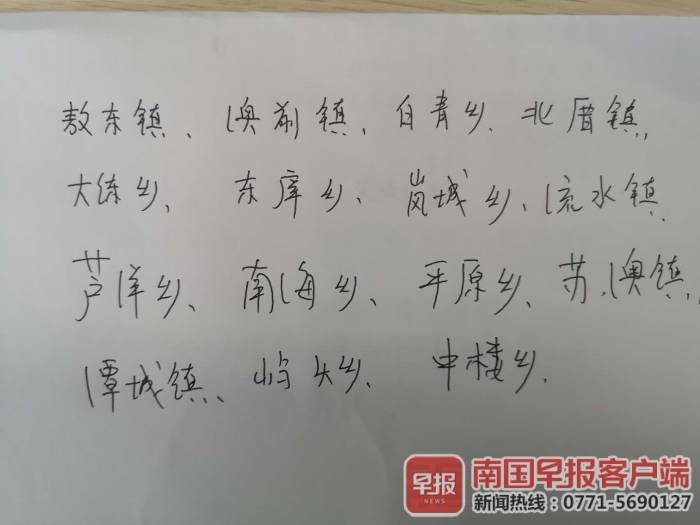 敖东镇、澳前镇、白青乡、北厝镇,
大练乡、东庠乡、岚城乡、流水镇、
芦洋乡、南海乡、平原乡、苏澳镇,
潭城镇、屿头乡、中楼乡.
早报
NEWS
南国早报客户端
新闻热线:0771-5690127